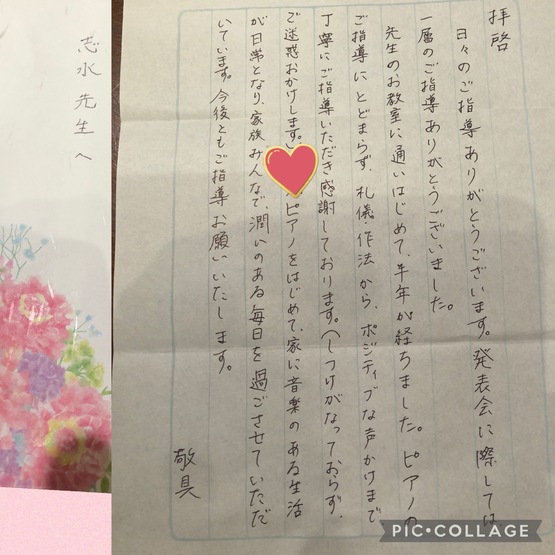 志水先生へ
拝啓
日々のご指導ありがとうございます。発表会に際しては
一層のご指導ありがとうございました。
先生のお教室に通いはじめて、半年が経ちました。ピアノの
ご指導にとどまらず、礼儀作法から、ポジティブな声かけまで
丁寧にご指導いただき感謝しております。(しつけがなっておらず、
ご迷惑おかけします。
ピアノをはじめて、家に音楽のある生活
が日常となり、家族みんなで、潤いのある毎日を過ごさせていただ
いています。今後ともご指導お願いいたします。
敬具
PIC•COLLAGE